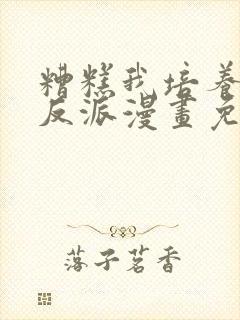 糟糕我培养
反派漫畫免
落子茗香